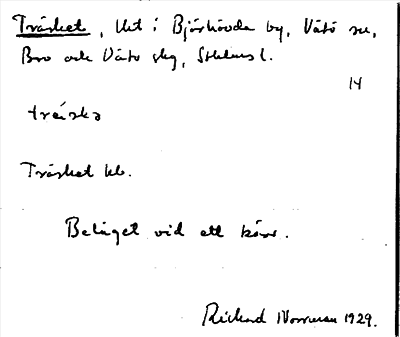 Träsket, Utt i Björkövda by, Vätö sn,
Bro och Vätö skg, Sthlms l.
14
träskə
Träsket kb.
Beläget vid ett kärr.
Rickard Norrman 1929.